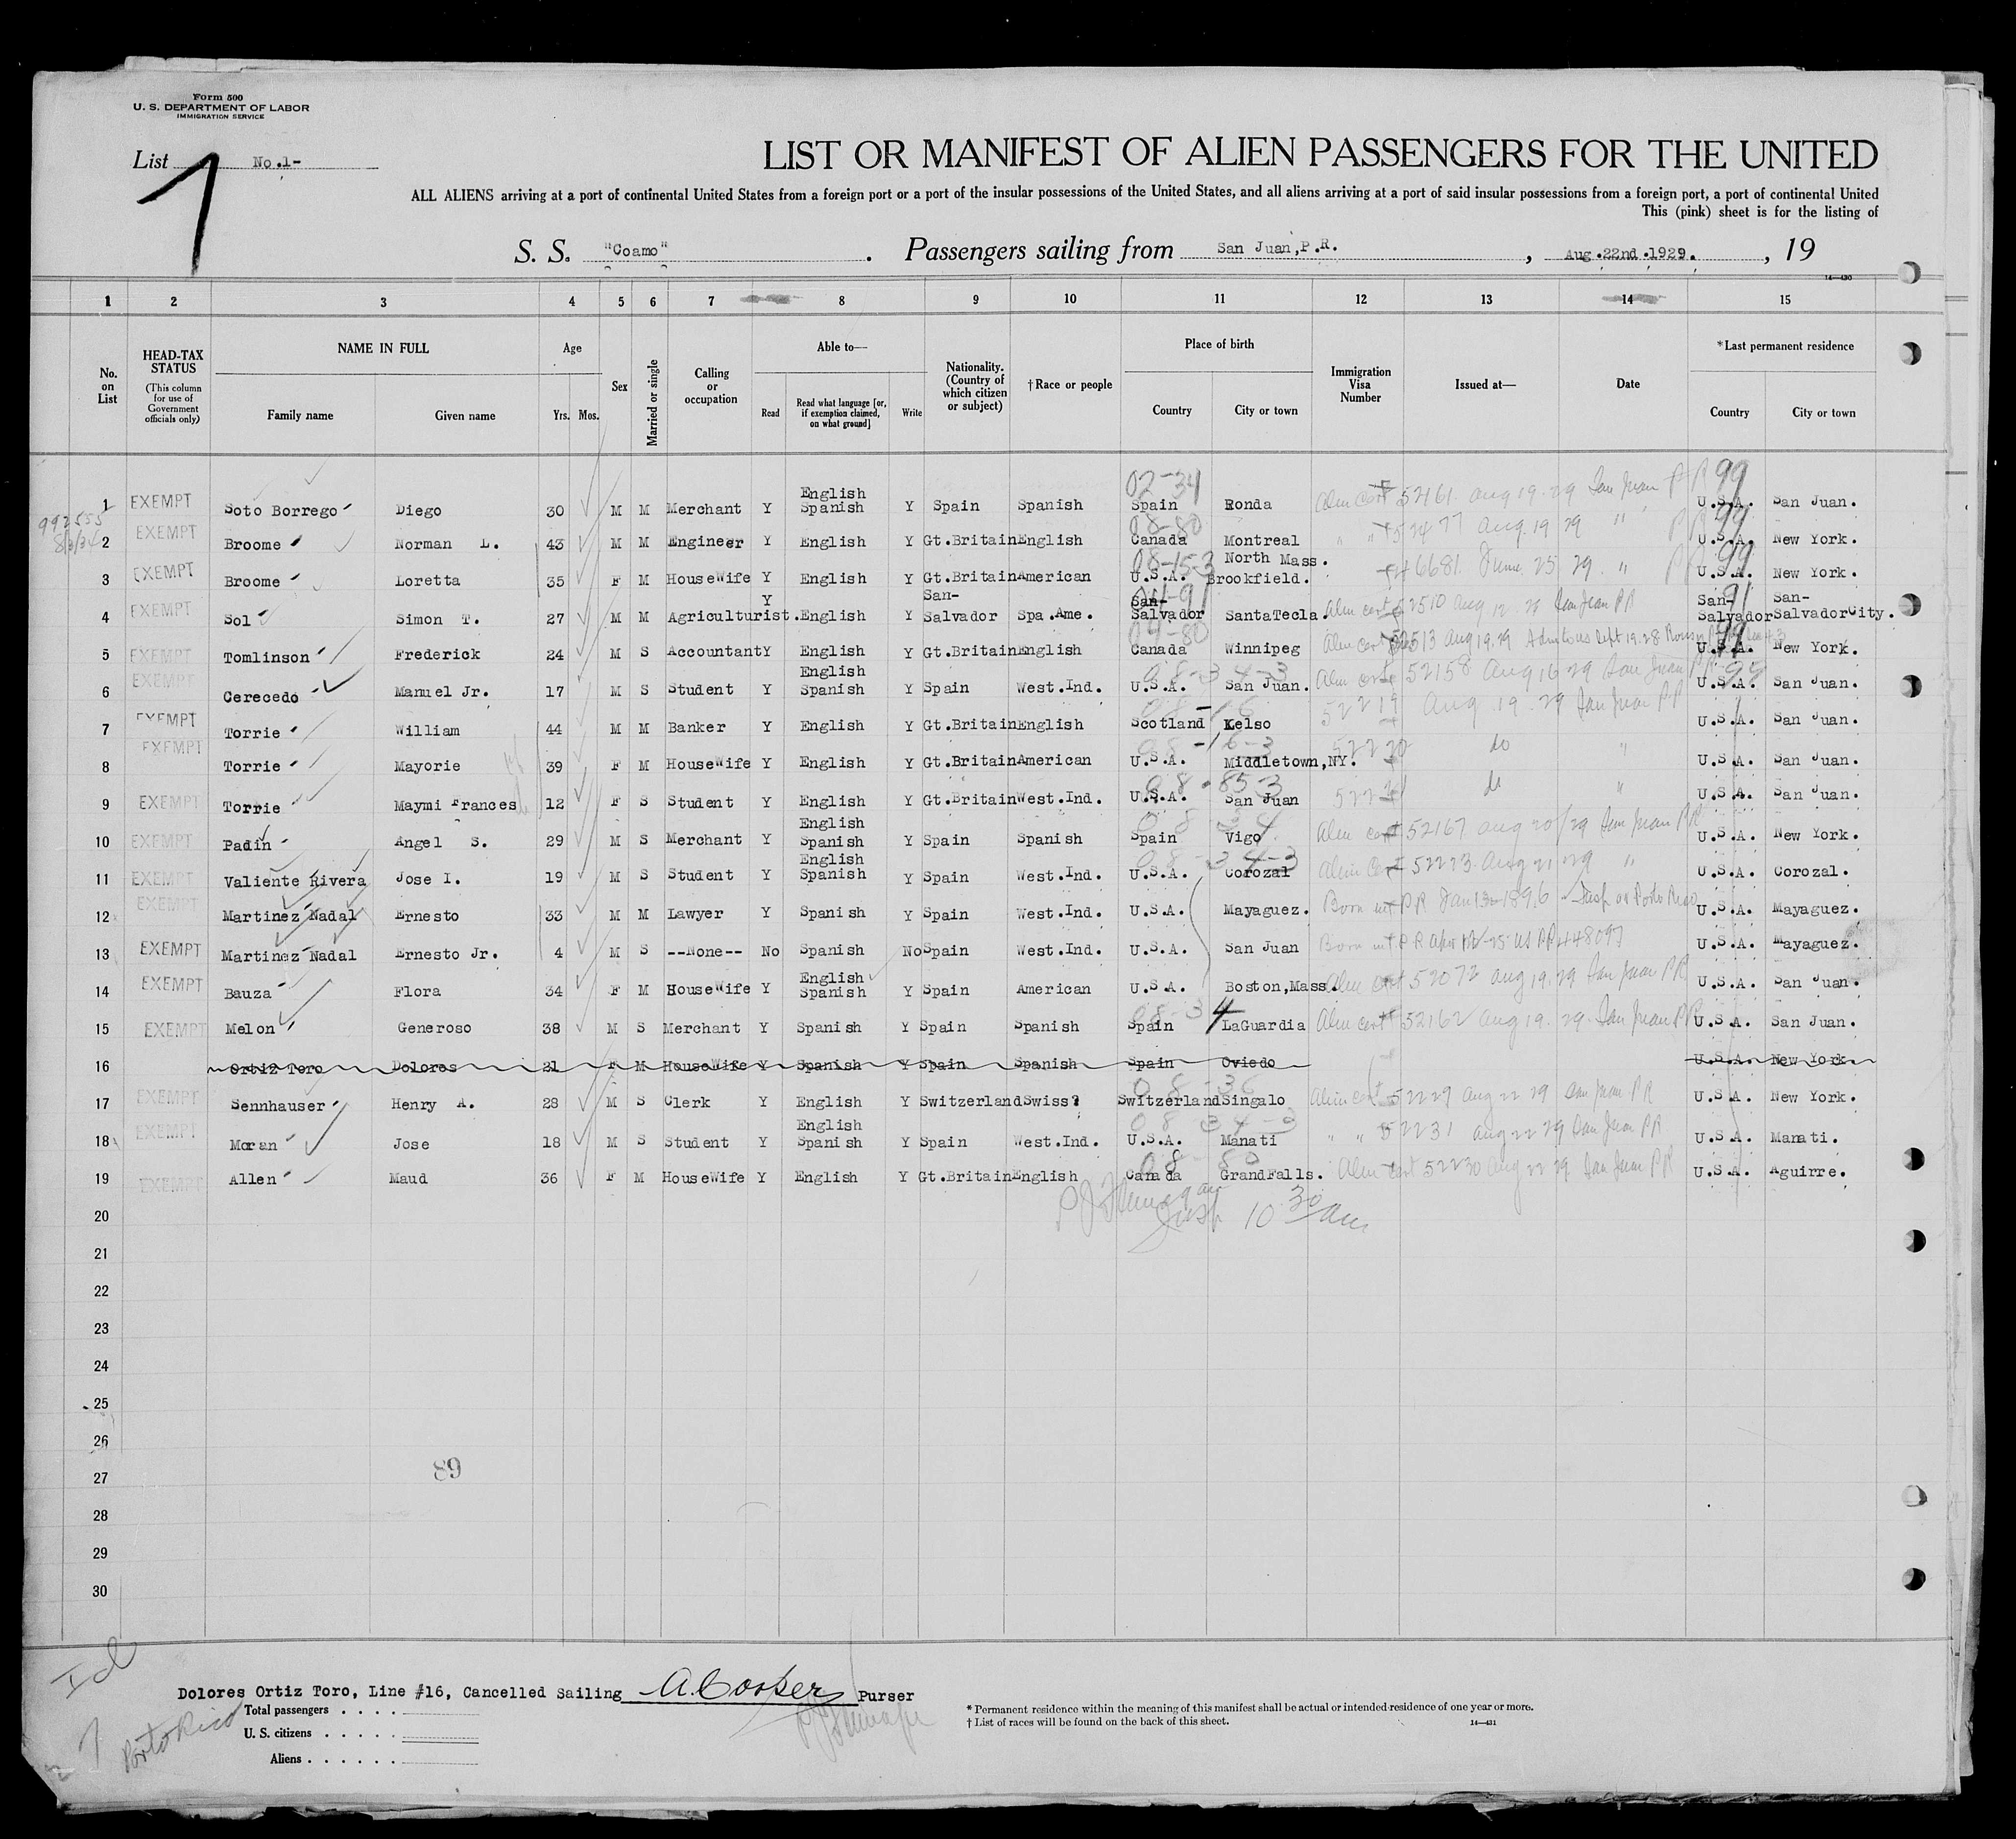 Form 500
U. S. DEPARTMENT OF LABOR
IMMIGRATION SERVICE
List No.1-
1
LIST OR MANIFEST OF ALIEN PASSENGERS FOR THE UNITED
ALL ALIENS arriving at a port of continental United States from a foreign port or a port of the insular possessions of the United States, and all aliens arriving at a port of said insular possessions from a foreign port, a port of continental United
This (pink) sheet is for the listing of
S. S. "Coamo" . Passengers sailing from San Juan,P.R. , Aug.22nd.1929. , 19
14—430
1 2 3 4 5 6 7 8 9 10 11 12 13 14 15
No. on List
HEAD-TAX STATUS (This column for use of Government officials only)
NAME IN FULL
Family name Given name
Age
Yrs. Mos.
Sex
Married or single
Calling or occupation
Able to—
Read Read what language [or, if exemption claimed, on what ground] Write
Nationality. (Country of which citizen or subject)
†Race or people
Place of birth
Country City or town
Immigration Visa Number
Issued at—
Date
*Last permanent residence
Country City or town
1 EXEMPT Soto Borrego Diego 30 M M Merchant Y English Spanish Y Spain Spanish 02-34 Spain Ronda Alien Cert 52161 Aug 19.29 San Juan PR 99 U.S.A. San Juan.
992555
2 EXEMPT Broome Norman L. 43 M M Engineer Y English Y Gt.Britain English 08-80 Canada Montreal " " Aug 19 29 " PR 99 U.S.A. New York.
3 EXEMPT Broome Loretta 35 F M HouseWife Y English Y Gt.Britain American 08-15-3 U.S.A. North Mass. Brookfield. 46681 June 25 29 " PR 99 U.S.A. New York.
4 Sol Simon T. 27 M M Agriculturist. Y English Y San-Salvador Spa.Ame. San-Salvador SantaTecla. Alien cert 52510 Aug 12 San Juan PR 91 San-Salvador San-SalvadorCity.
5 EXEMPT Tomlinson Frederick 24 M S Accountant Y English Y Gt.Britain English 04-80 Canada Winnipeg Alien Cert 52513 Aug 19.29 Sept 19.28 99 U.S.A. New York.
6 EXEMPT Cerecedo Manuel Jr. 17 M S Student Y English Spanish Y Spain West.Ind. 08-34-3 U.S.A. San Juan. Alien cert 52158 Aug 16 29 San Juan PR 99 U.S.A. San Juan.
7 EXEMPT Torrie William 44 M M Banker Y English Y Gt.Britain English 08-16 Scotland Kelso 52219 Aug 19.29 San Juan PR U.S.A. San Juan.
8 EXEMPT Torrie Mayorie 39 F M HouseWife Y English Y Gt.Britain American 08-16-3 U.S.A. Middletown,NY. 52220 do " U.S.A. San Juan.
9 EXEMPT Torrie Maymi Frances 12 F S Student Y English Y Gt.Britain West.Ind. 08-85-3 U.S.A. San Juan do " U.S.A. San Juan.
10 EXEMPT Padin Angel S. 29 M S Merchant Y English Spanish Y Spain Spanish 08 34 Spain Vigo Alien cert 52167 Aug 20/29 San Juan PR U.S.A. New York.
11 EXEMPT Valiente Rivera Jose I. 19 M S Student Y English Spanish Y Spain West.Ind. 08-34-3 U.S.A. Corozal Alien Cert 52223 Aug 21 29 " U.S.A. Corozal.
12 EXEMPT Martinez Nadal Ernesto 33 M M Lawyer Y Spanish Y Spain West.Ind. U.S.A. Mayaguez. Born in PR Jan 13-1896 Porto Rico U.S.A. Mayaguez.
13 EXEMPT Martinez Nadal Ernesto Jr. 4 M S --None-- No Spanish No Spain West.Ind. U.S.A. San Juan Born in PR U.S.A. Mayaguez.
14 EXEMPT Bauza Flora 34 F M HouseWife Y English Spanish Y Spain American U.S.A. Boston,Mass. Alien cert 52072 Aug 19.29 San Juan PR U.S.A. San Juan.
15 EXEMPT Melon Generoso 38 M S Merchant Y Spanish Y Spain Spanish 08-34 Spain LaGuardia Alien cert 52162 Aug 19.29. San Juan PR U.S.A. San Juan.
16 Ortiz Toro Dolores 21 F M HouseWife Y Spanish Y Spain Spanish Spain Oviedo U.S.A. New York.
17 EXEMPT Sennhauser Henry A. 28 M S Clerk Y English Y Switzerland Swiss? 08-36 Switzerland Singalo Alien cert 52229 Aug 22 29 San Juan PR U.S.A. New York.
18 EXEMPT Moran Jose 18 M S Student Y English Spanish Y Spain West.Ind. 08 34-3 U.S.A. Manati " " 52231 Aug 22 29 San Juan PR U.S.A. Manati.
19 EXEMPT Allen Maud 36 F M HouseWife Y English Y Gt.Britain English 08 80 Canada GrandFalls. Alien cert 52230 Aug 22 29 San Juan PR U.S.A. Aguirre.
20
Insp 10 30 am
21
22
23
24
25
26
27
89
28
29
30
Dolores Ortiz Toro, Line #16, Cancelled Sailing A Cooper Purser
Total passengers . . . .
U. S. citizens . . . . .
Aliens . . . . . .
Porto Rico
* Permanent residence within the meaning of this manifest shall be actual or intended residence of one year or more.
† List of races will be found on the back of this sheet.
14—431